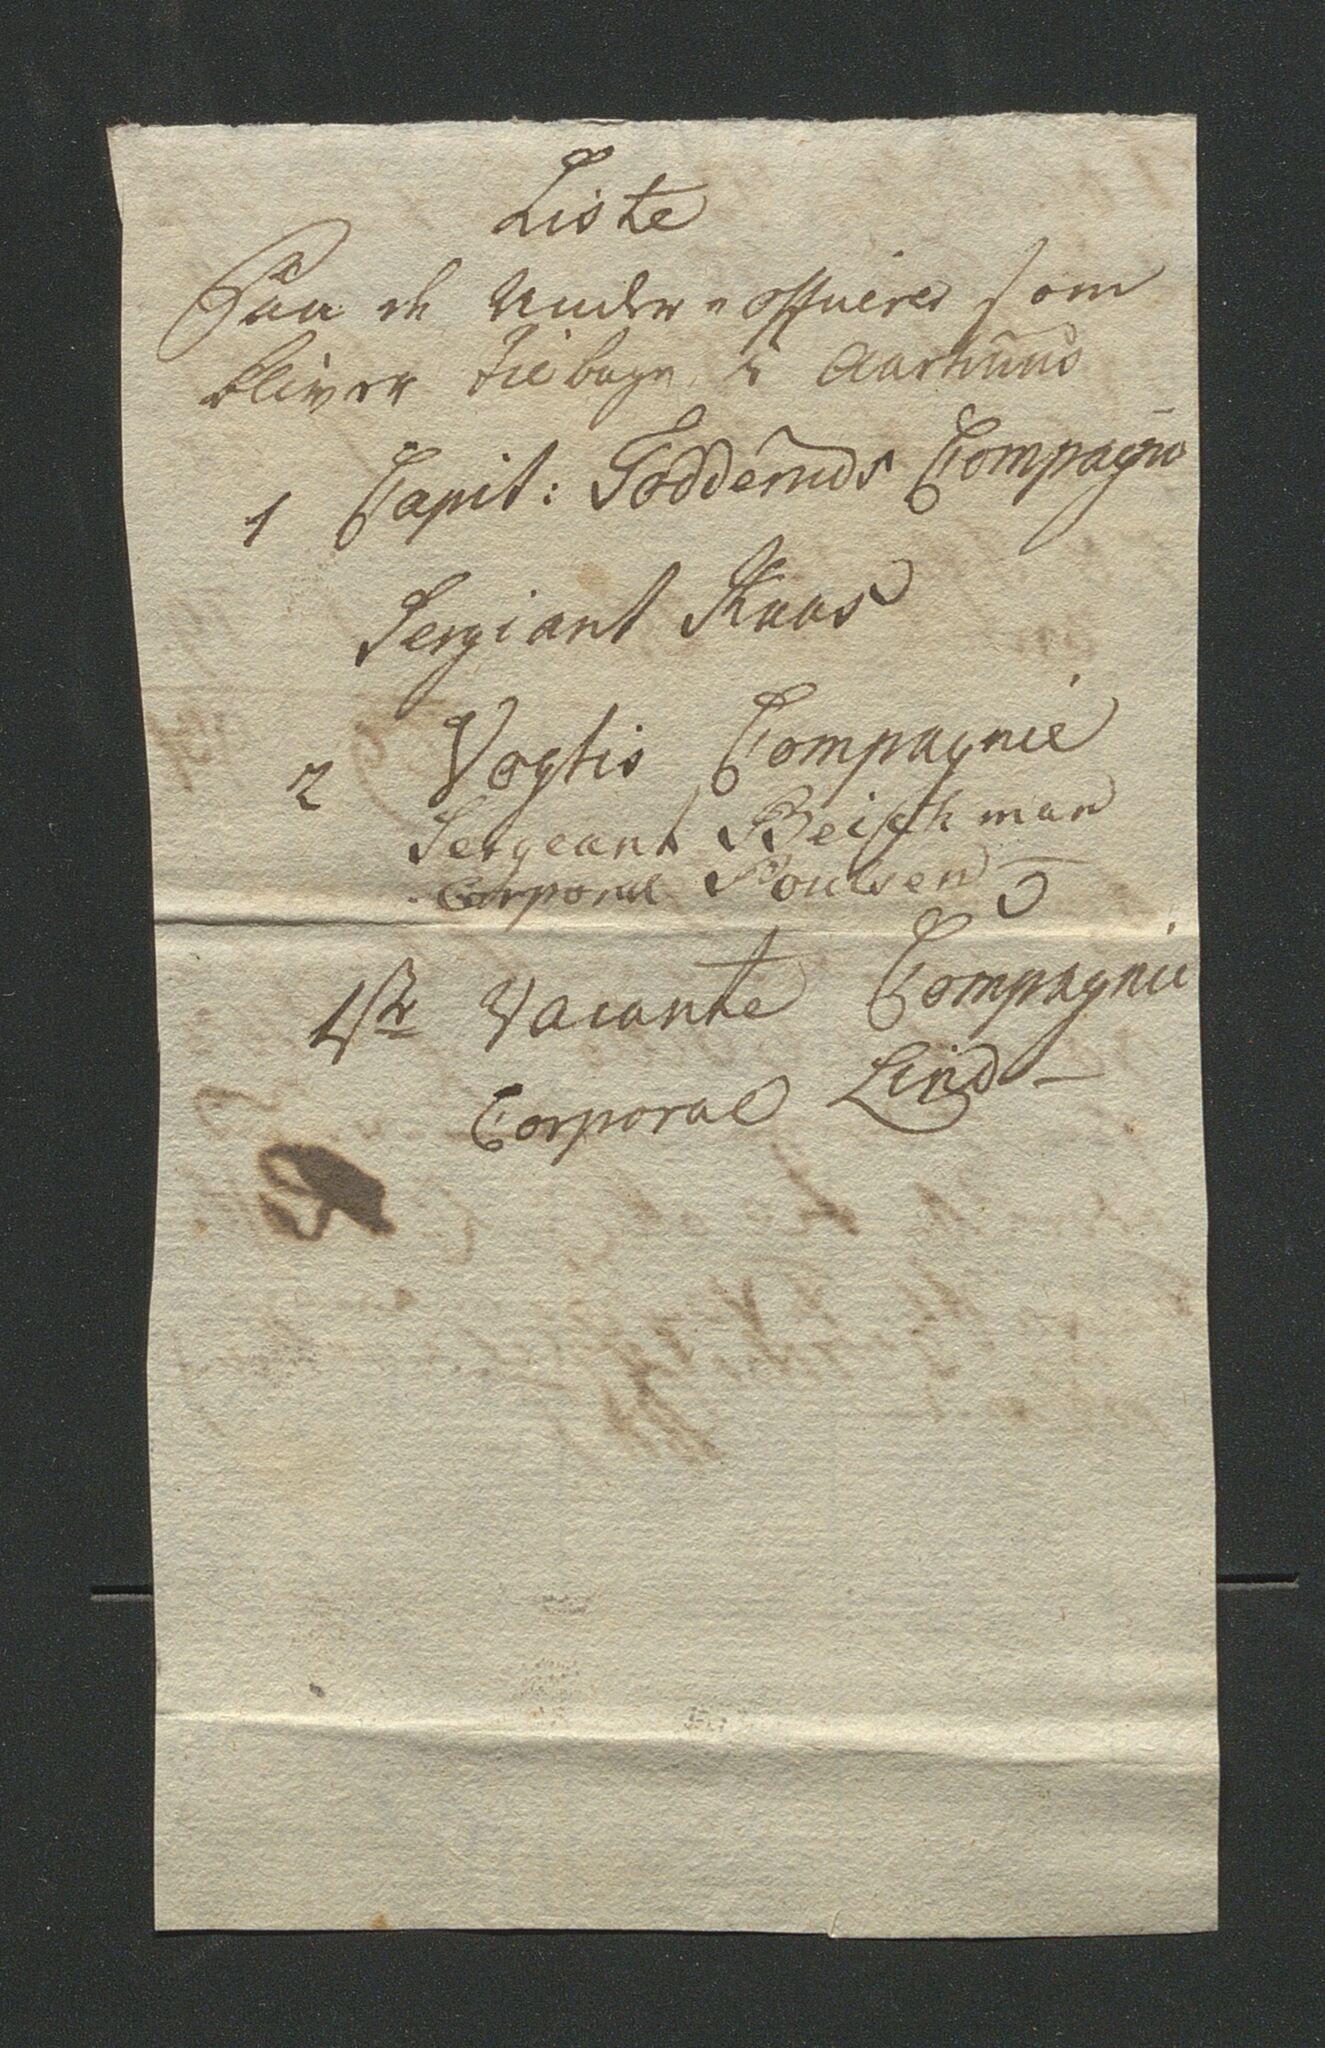 Liste
Paa de Under-officirer som
bliver tilbage i Aarhuus
1 Capit: Fodderuds Compagnie
Sergiant Kaas
2 Vogtis Compagnie
Sergeant Beichman
Corporal Poulsen
1ste Vacante Compagnie
Corporal Lind